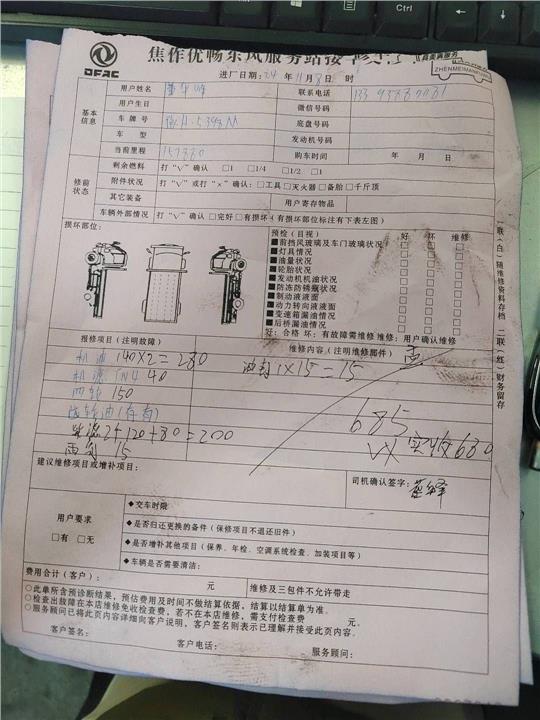 Alt
Ctrl
DFAC
焦作优畅东风服务站接
ZHENMEIMA
进厂日期:24年11月8日 时
基本信息
用户姓名
联系电话
用户生日
微信号码
车牌号
底盘号码
车型
发动机号码
当前里程 157880
购车时间 年 月 日
修前状态
剩余燃料 打“√”确认 □1 □1/4 □1/2 □1
附件状况 打“√”或打“×”确认:□工具□灭火器□备胎□千斤顶
其它装备
用户寄存物品
车辆外部情况 打“√”确认□完好□有损坏(有损坏部位标注有下表左图)
损坏部位:
预检(目视) 好 坏 维修
■前挡风玻璃及车门玻璃状况
■灯具情况
■油量状况
■轮胎状况
■发动机机油状况
■防冻防锈瓶状况
■制动液液面
■动力转向液液面
■变速箱漏油情况
■后桥漏油情况
好:合格 坏:有故障需维修 维修:用户确认维修
一联(白)随维修资料存档 二联(红)财务留存
报修项目(注明故障)
维修内容(注明维修部件)
机油 140×2=280
油封1×15=15
机滤 40
150
685
柴滤2个120+80=200
实收680
15
建议维修项目或增补项目:
司机确认签字:
用户要求
□有 □无
◆交车时限
◆是否归还更换的备件(保修项目不退还旧件)
◆是否增补其他项目(保养、年检、空调系统检查、加装项目等)
◆车辆是否需要清洁:
费用合计(客户): 元
维修及三包件不允许带走
○此单所含预诊断结果,预估费用及时间不做结算依据,结算以结算单为准。
○检查出故障在本店维修免收检查费,若不在本店维修,需支付检查费 元。
○服务顾问已将此页内容详细向客户说明,客户签名则表示已理解并接受此页内容。
客户签名:
客户电话:
服务顾问: